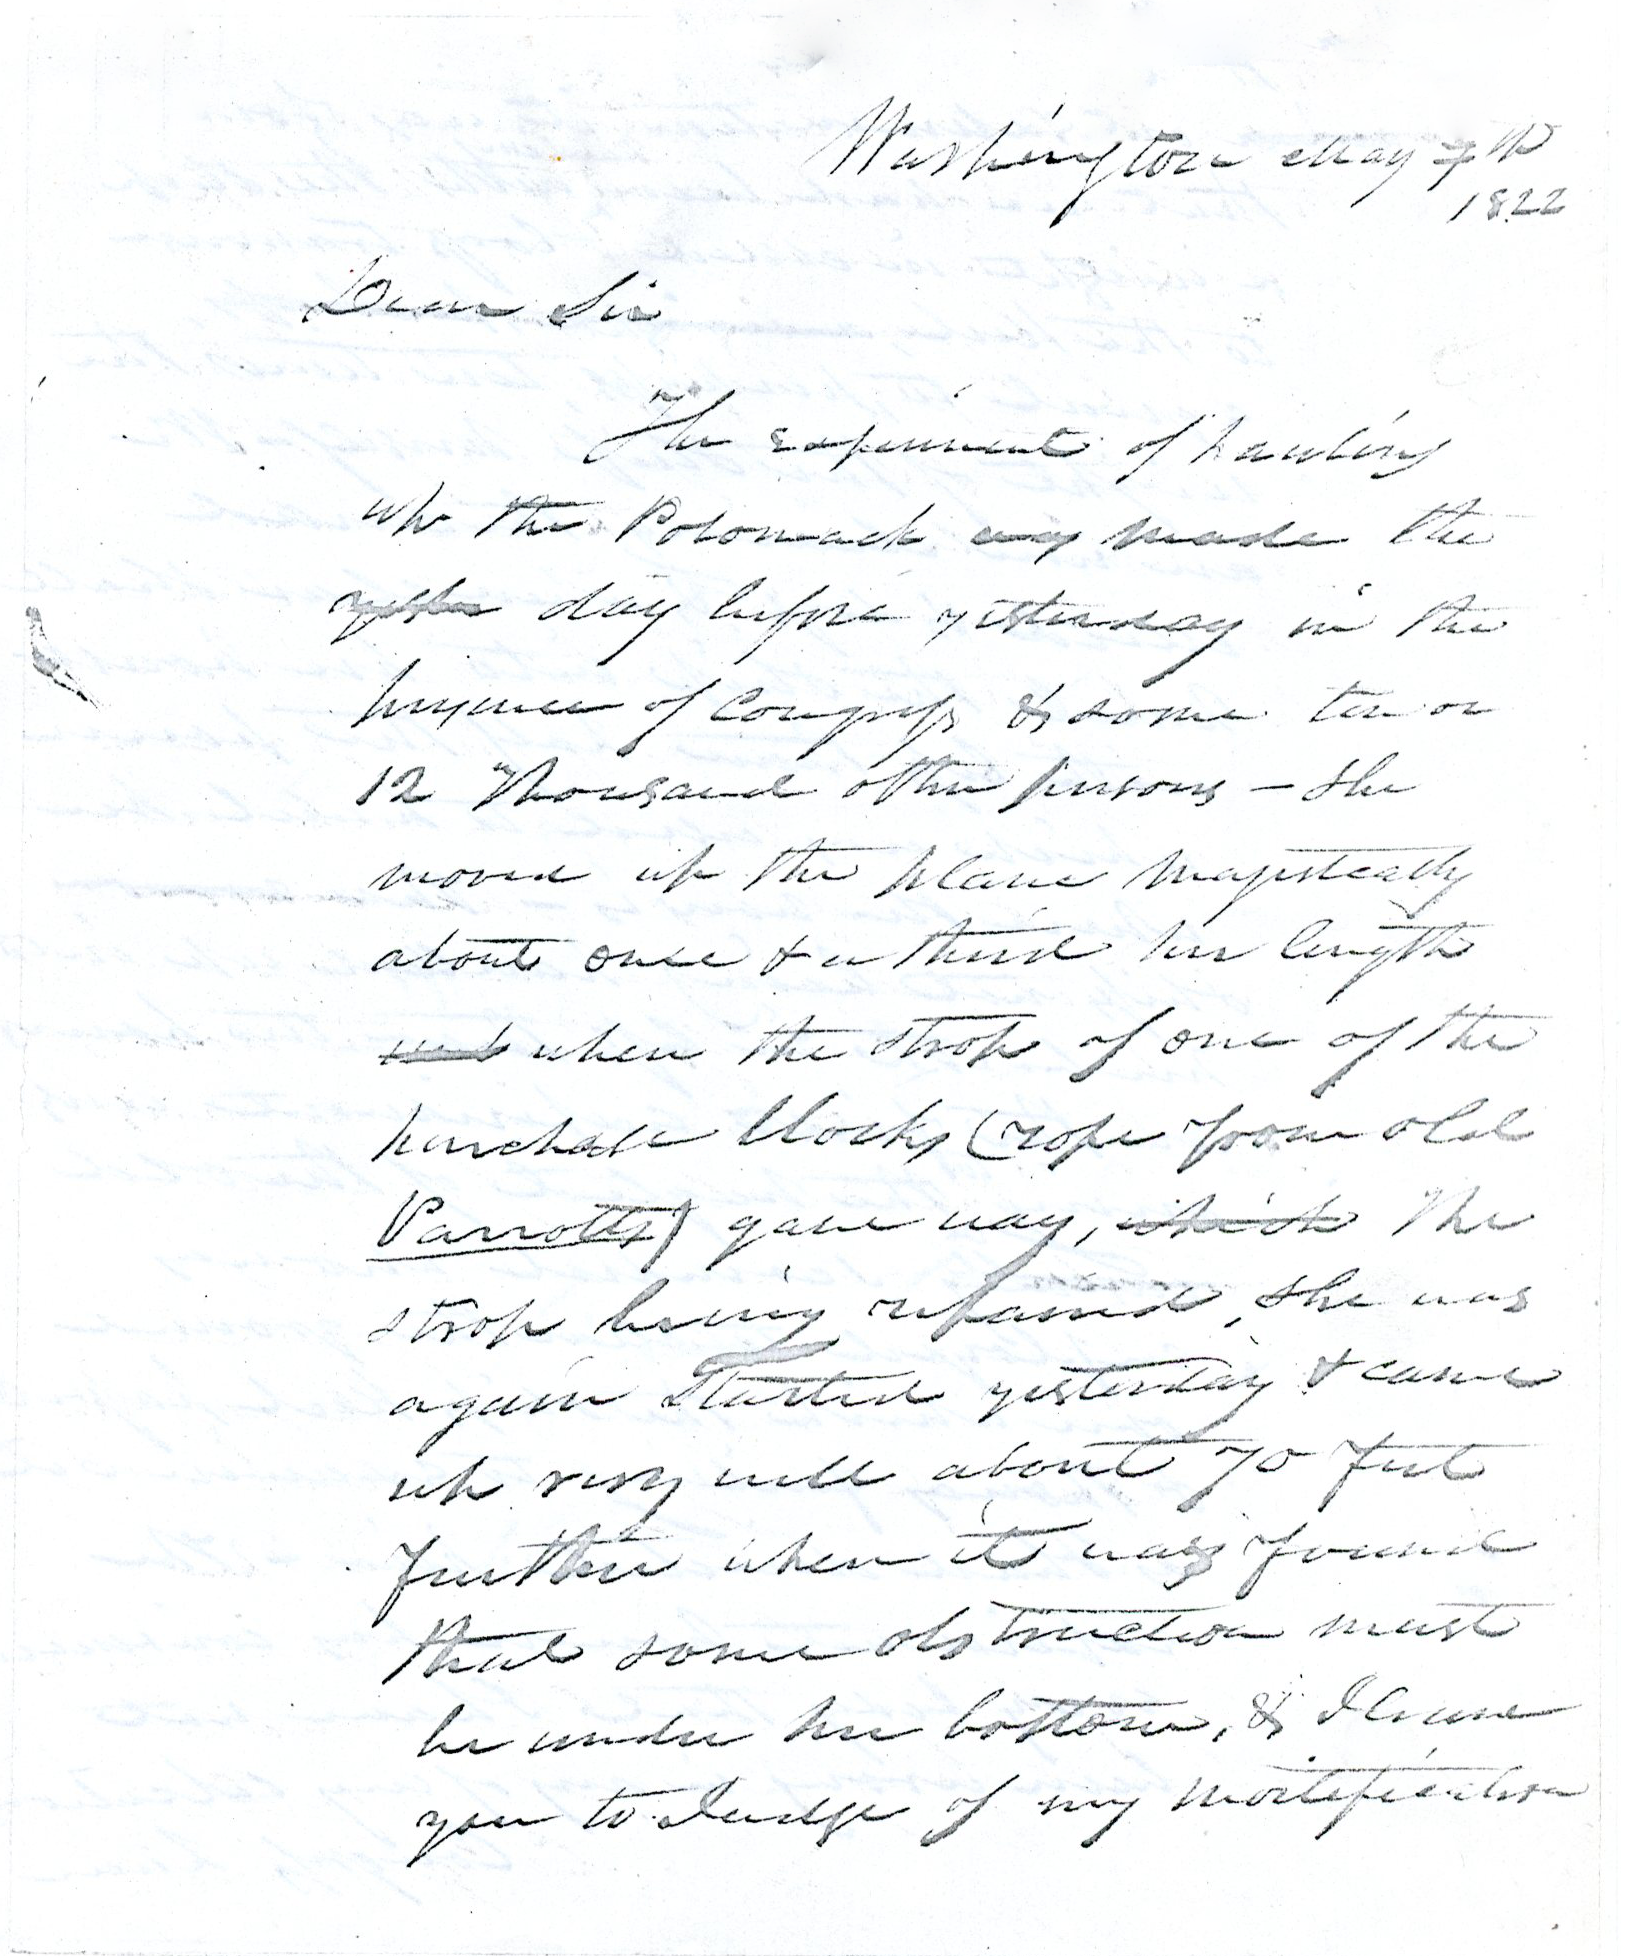 Washington May 7th
1822
Dear Sir
The experiment of hauling
up the Potomack was made the
yester day before yesterday in the
presence of Congress & some ten or
12 Thousand other persons – She
moved up the plane majestically
about once & a third her length
and when the strop of one of the
purchase blocks (rope from old
Parrotts) gave way, which The
strop being repaired, she was
again started yesterday & came
up very well about 70 feet
further when it was found
that some obstruction must
be under her bottom, & I leave
you to Judge of my mortification